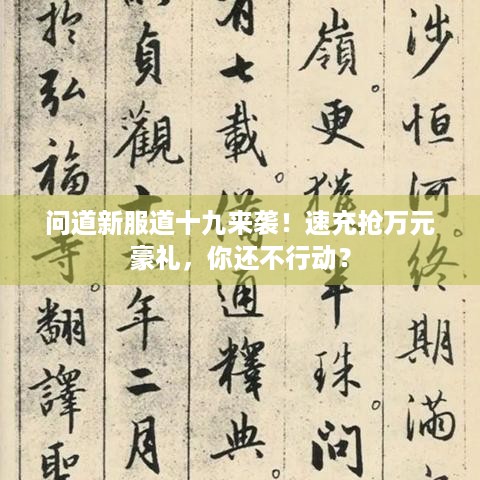 涉恒河。終期滿
嶺。更獲半珠問
有七載備通釋典。
貞觀十年二月
於弘福寺。翻譯聖
问道新服道十九来袭！速充抢万元
豪礼，你还不行动？